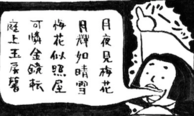 月夜見梅花
月輝如晴雪
梅花似照星
可憐金鏡転
庭上玉房馨